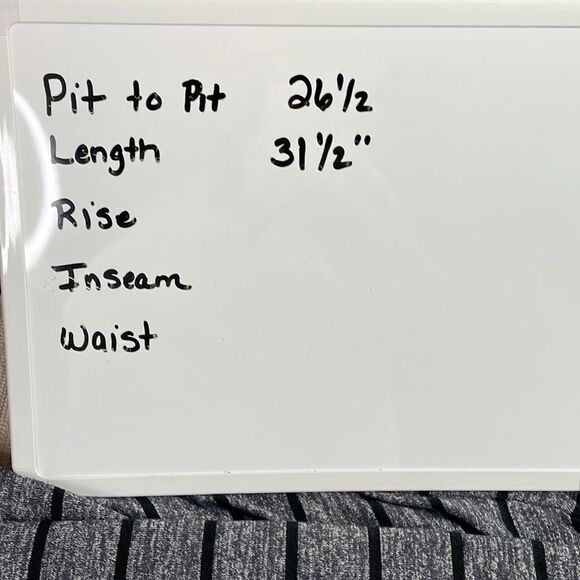 Pit to Pit 26 1/2
Length 31 1/2"
Rise
Inseam
Waist